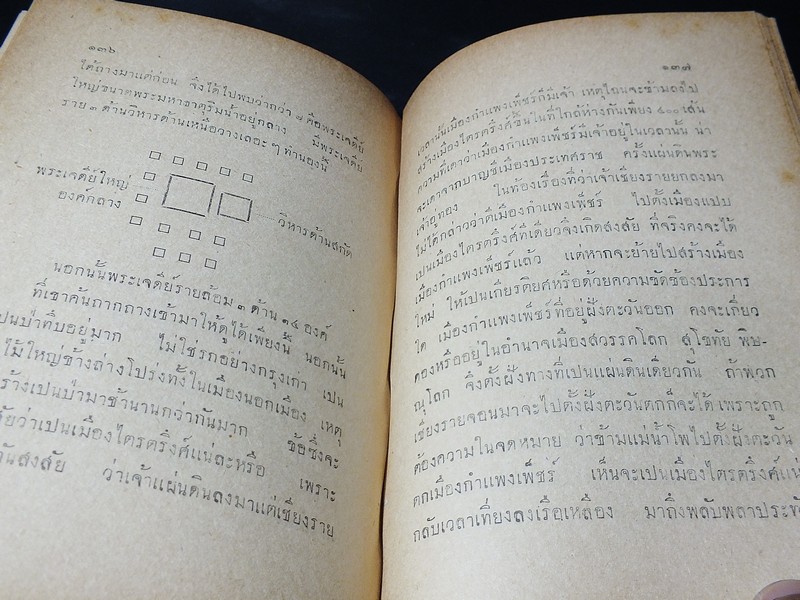 ๑๓๖
ได้ถางมาแต่ก่อน จึงได้ไปพบว่ากว่า ๗ คือพระเจดีย์
ใหญ่ขนาดพระมหาธาตุริมน้ำอยู่กลาง มีพระเจดีย์
ราย ๓ ด้านวิหารด้านเหนือวางเถอะ ๆ ทำนองนี้
พระเจดีย์ใหญ่
องค์กลาง
วิหารด้านสกัด
นอกนั้นพระเจดีย์รายล้อม ๓ ด้าน ๑๔ องค์
ที่เขาค้นถากถางเข้ามาให้ดูได้เพียงนี้ นอกนั้น
เปนป่าทึบอยู่มาก ไม่ใช่รกอย่างกรุงเก่า เปน
ไม้ใหญ่ข้างล่างโปร่งทั้งในเมืองนอกเมือง เหตุ
ร้างเปนป่ามาช้านานกว่ากันมาก ข้อซึ่งจะ
ว่าเปนเมืองไตรตรึงศ์แน่ละหรือ เพราะ
สงสัย ว่าเจ้าแผ่นดินลงมาแต่เชียงราย
๑๓๗
เวลานั้นเมืองกำแพงเพ็ชร์ก็มีเจ้า เหตุไฉนจะข้ามลงไป
สร้างเมืองไตรตรึงศ์ขึ้นในที่ใกล้ห่างกันเพียง ๔๐๐ เส้น
ความที่เดาว่าเมืองกำแพงเพ็ชร์มีเจ้าอยู่ในเวลานั้น น่า
จะเดาจากบาญชีเมืองประเทศราช ครั้งแผ่นดินพระ
เจ้าอู่ทอง ในท้องเรื่องที่ว่าเจ้าเชียงรายยกลงมา
ไม่ได้กล่าวว่าตีเมืองกำแพงเพ็ชร์ ไปตั้งเมืองแปบ
เปนเมืองไตรตรึงศ์ทีเดียวจึงเกิดสงสัย ที่จริงคงจะได้
เมืองกำแพงเพ็ชร์แล้ว แต่หากจะย้ายไปสร้างเมือง
ใหม่ ให้เปนเกียรติยศหรือด้วยความขัดข้องประการ
ใด เมืองกำแพงเพ็ชร์ที่อยู่ฝั่งตะวันออก คงจะเกี่ยว
ดองหรืออยู่ในอำนาจเมืองสวรรคโลก สุโขทัย พิษ-
ณุโลก จึงตั้งฝั่งทางที่เปนแผ่นดินเดียวกัน ถ้าพวก
เชียงรายจอนมาจะไปตั้งฝั่งตะวันตกก็จะได้ เพราะถูก
ต้องความในจดหมาย ว่าข้ามแม่น้ำโพไปตั้งฝั่งตะวัน
ตกเมืองกำแพงเพ็ชร์ เห็นจะเปนเมืองไตรตรึงศ์แน่
กลับเวลาเที่ยงลงเรือเหลือง มาถึงพลับพลาประทับ